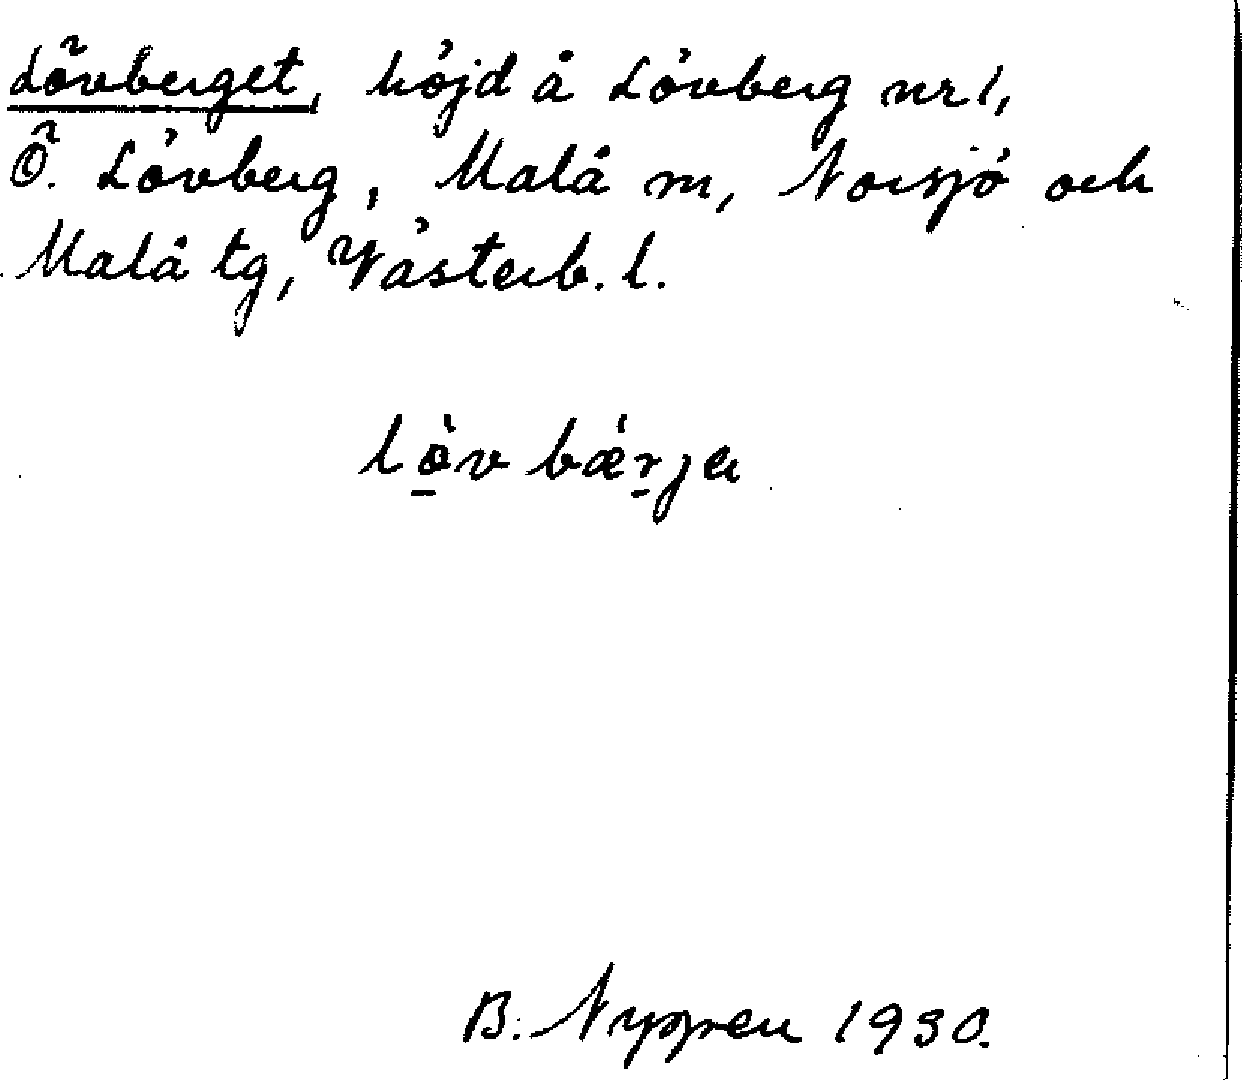 Lövberget, höjd å Lövberg nr 1,
Ö. Lövberg, Malå m, Norsjö och
Malå tg, Västerb. l.
lö̀v bǽrja
B. Nyppen 1930.